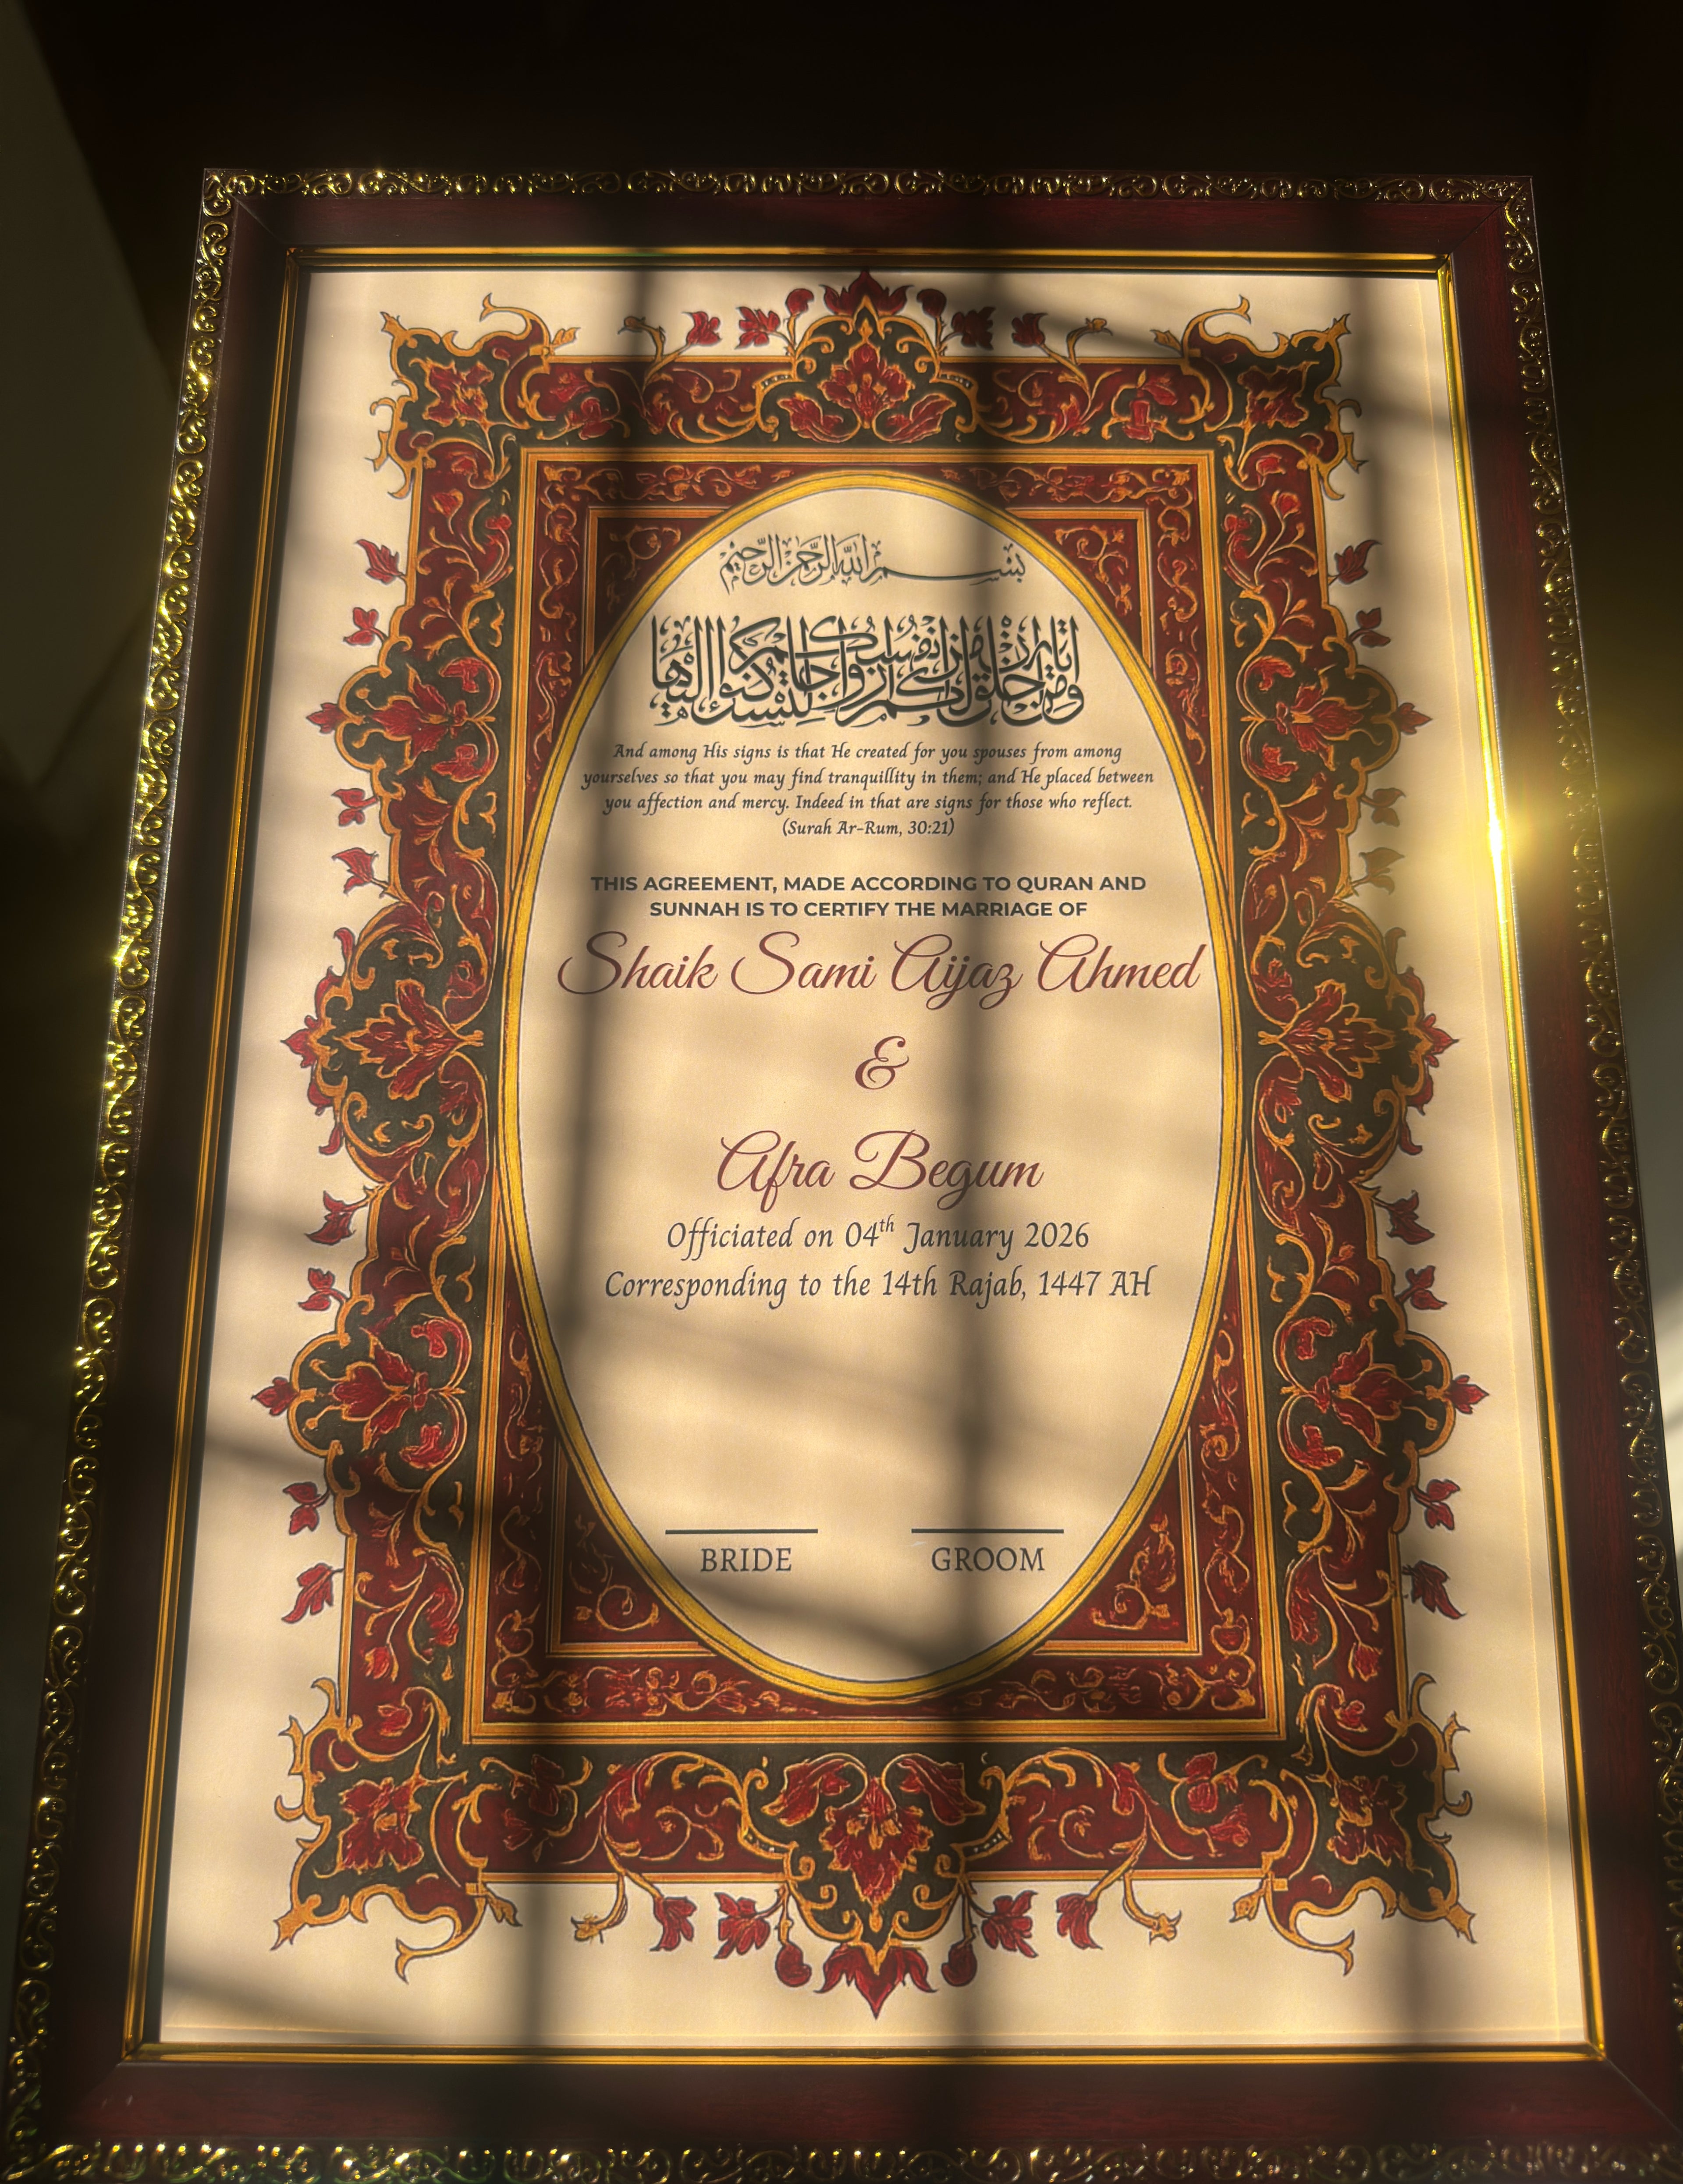 بسم الله الرحمن الرحيم
ومن آياته أن خلق لكم من أنفسكم أزواجا لتسكنوا إليها
And among His signs is that He created for you spouses from among
yourselves so that you may find tranquillity in them; and He placed between
you affection and mercy. Indeed in that are signs for those who reflect.
(Surah Ar-Rum, 30:21)
THIS AGREEMENT, MADE ACCORDING TO QURAN AND
SUNNAH IS TO CERTIFY THE MARRIAGE OF
Shaik Sami Aijaz Ahmed
&
Afra Begum
Officiated on 04th January 2026
Corresponding to the 14th Rajab, 1447 AH
BRIDE GROOM